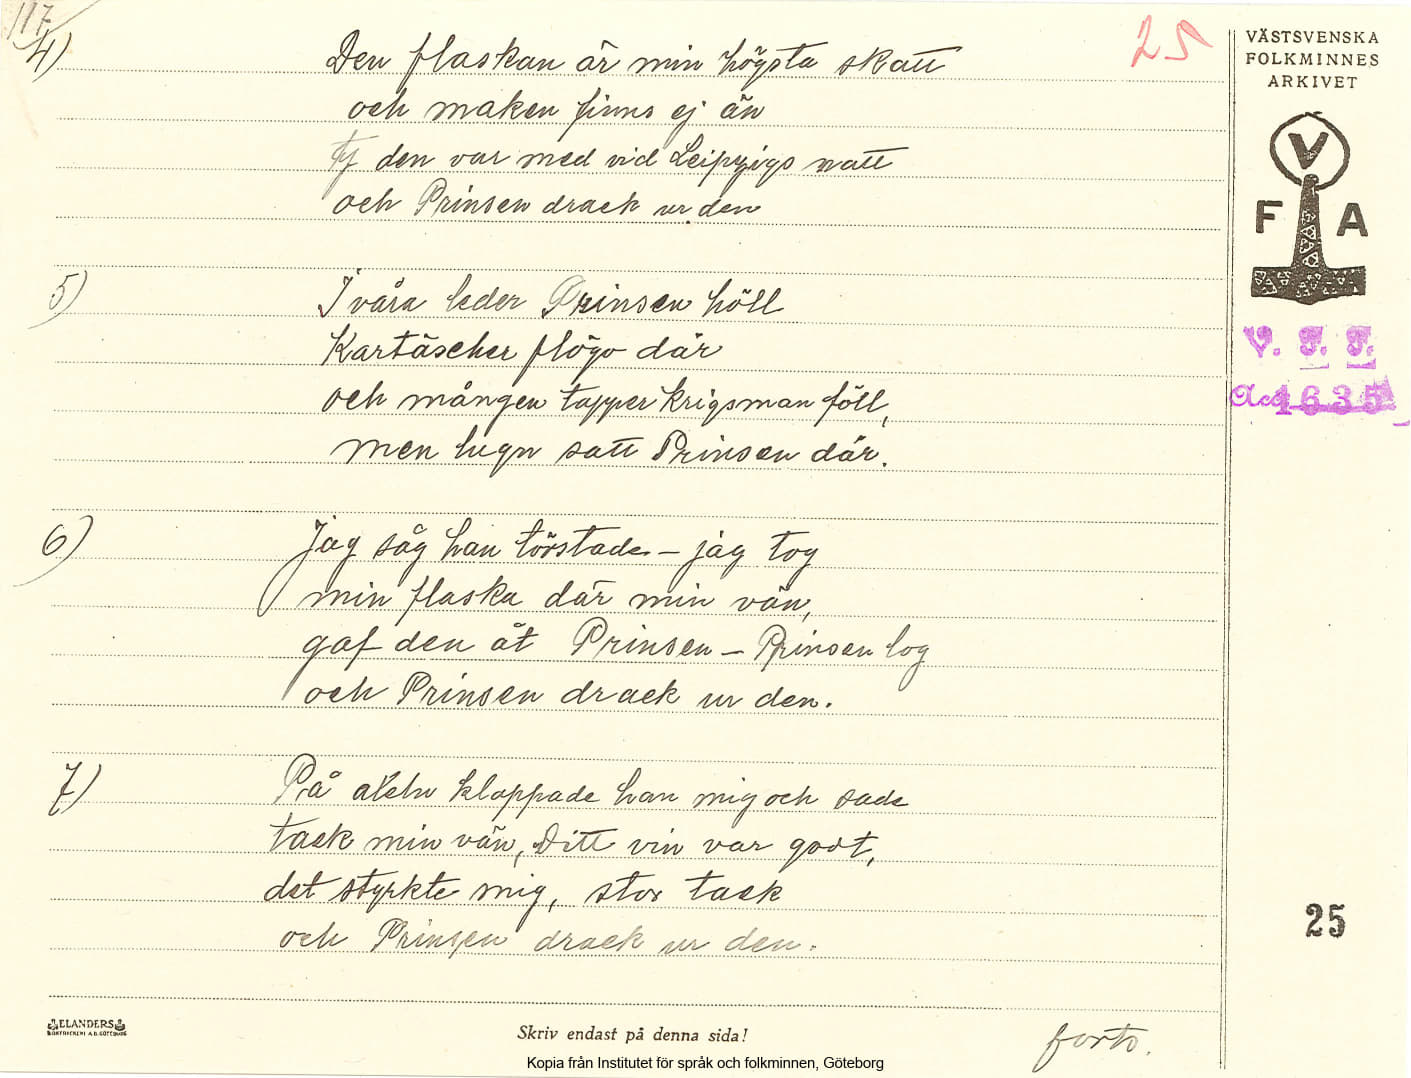 117
4)
Den flaskan är min högsta skatt
och maken finns ej än
ty den var med vid Leipzigs natt
och Prinsen drack ur den
5)
I våra leder Prinsen höll
Kartäscher flögo där
och mången tapper krigsman föll,
men lugn satt Prinsen där.
6)
Jag såg han törstade – jag tog
min flaska där min vän,
gaf den åt Prinsen – Prinsen log
och Prinsen drack ur den.
7)
På axeln klappade han mig och sade
tack min vän, Ditt vin var godt,
det styrkte mig, stor tack
och Prinsen drack ur den.
forts.
25
VÄSTSVENSKA
FOLKMINNES
ARKIVET
V
F A
V. F. F.
Acc 4635
25
ELANDERS
BOKTRYCKERI A.B. GÖTEBORG
Skriv endast på denna sida!
Kopia från Institutet för språk och folkminnen, Göteborg